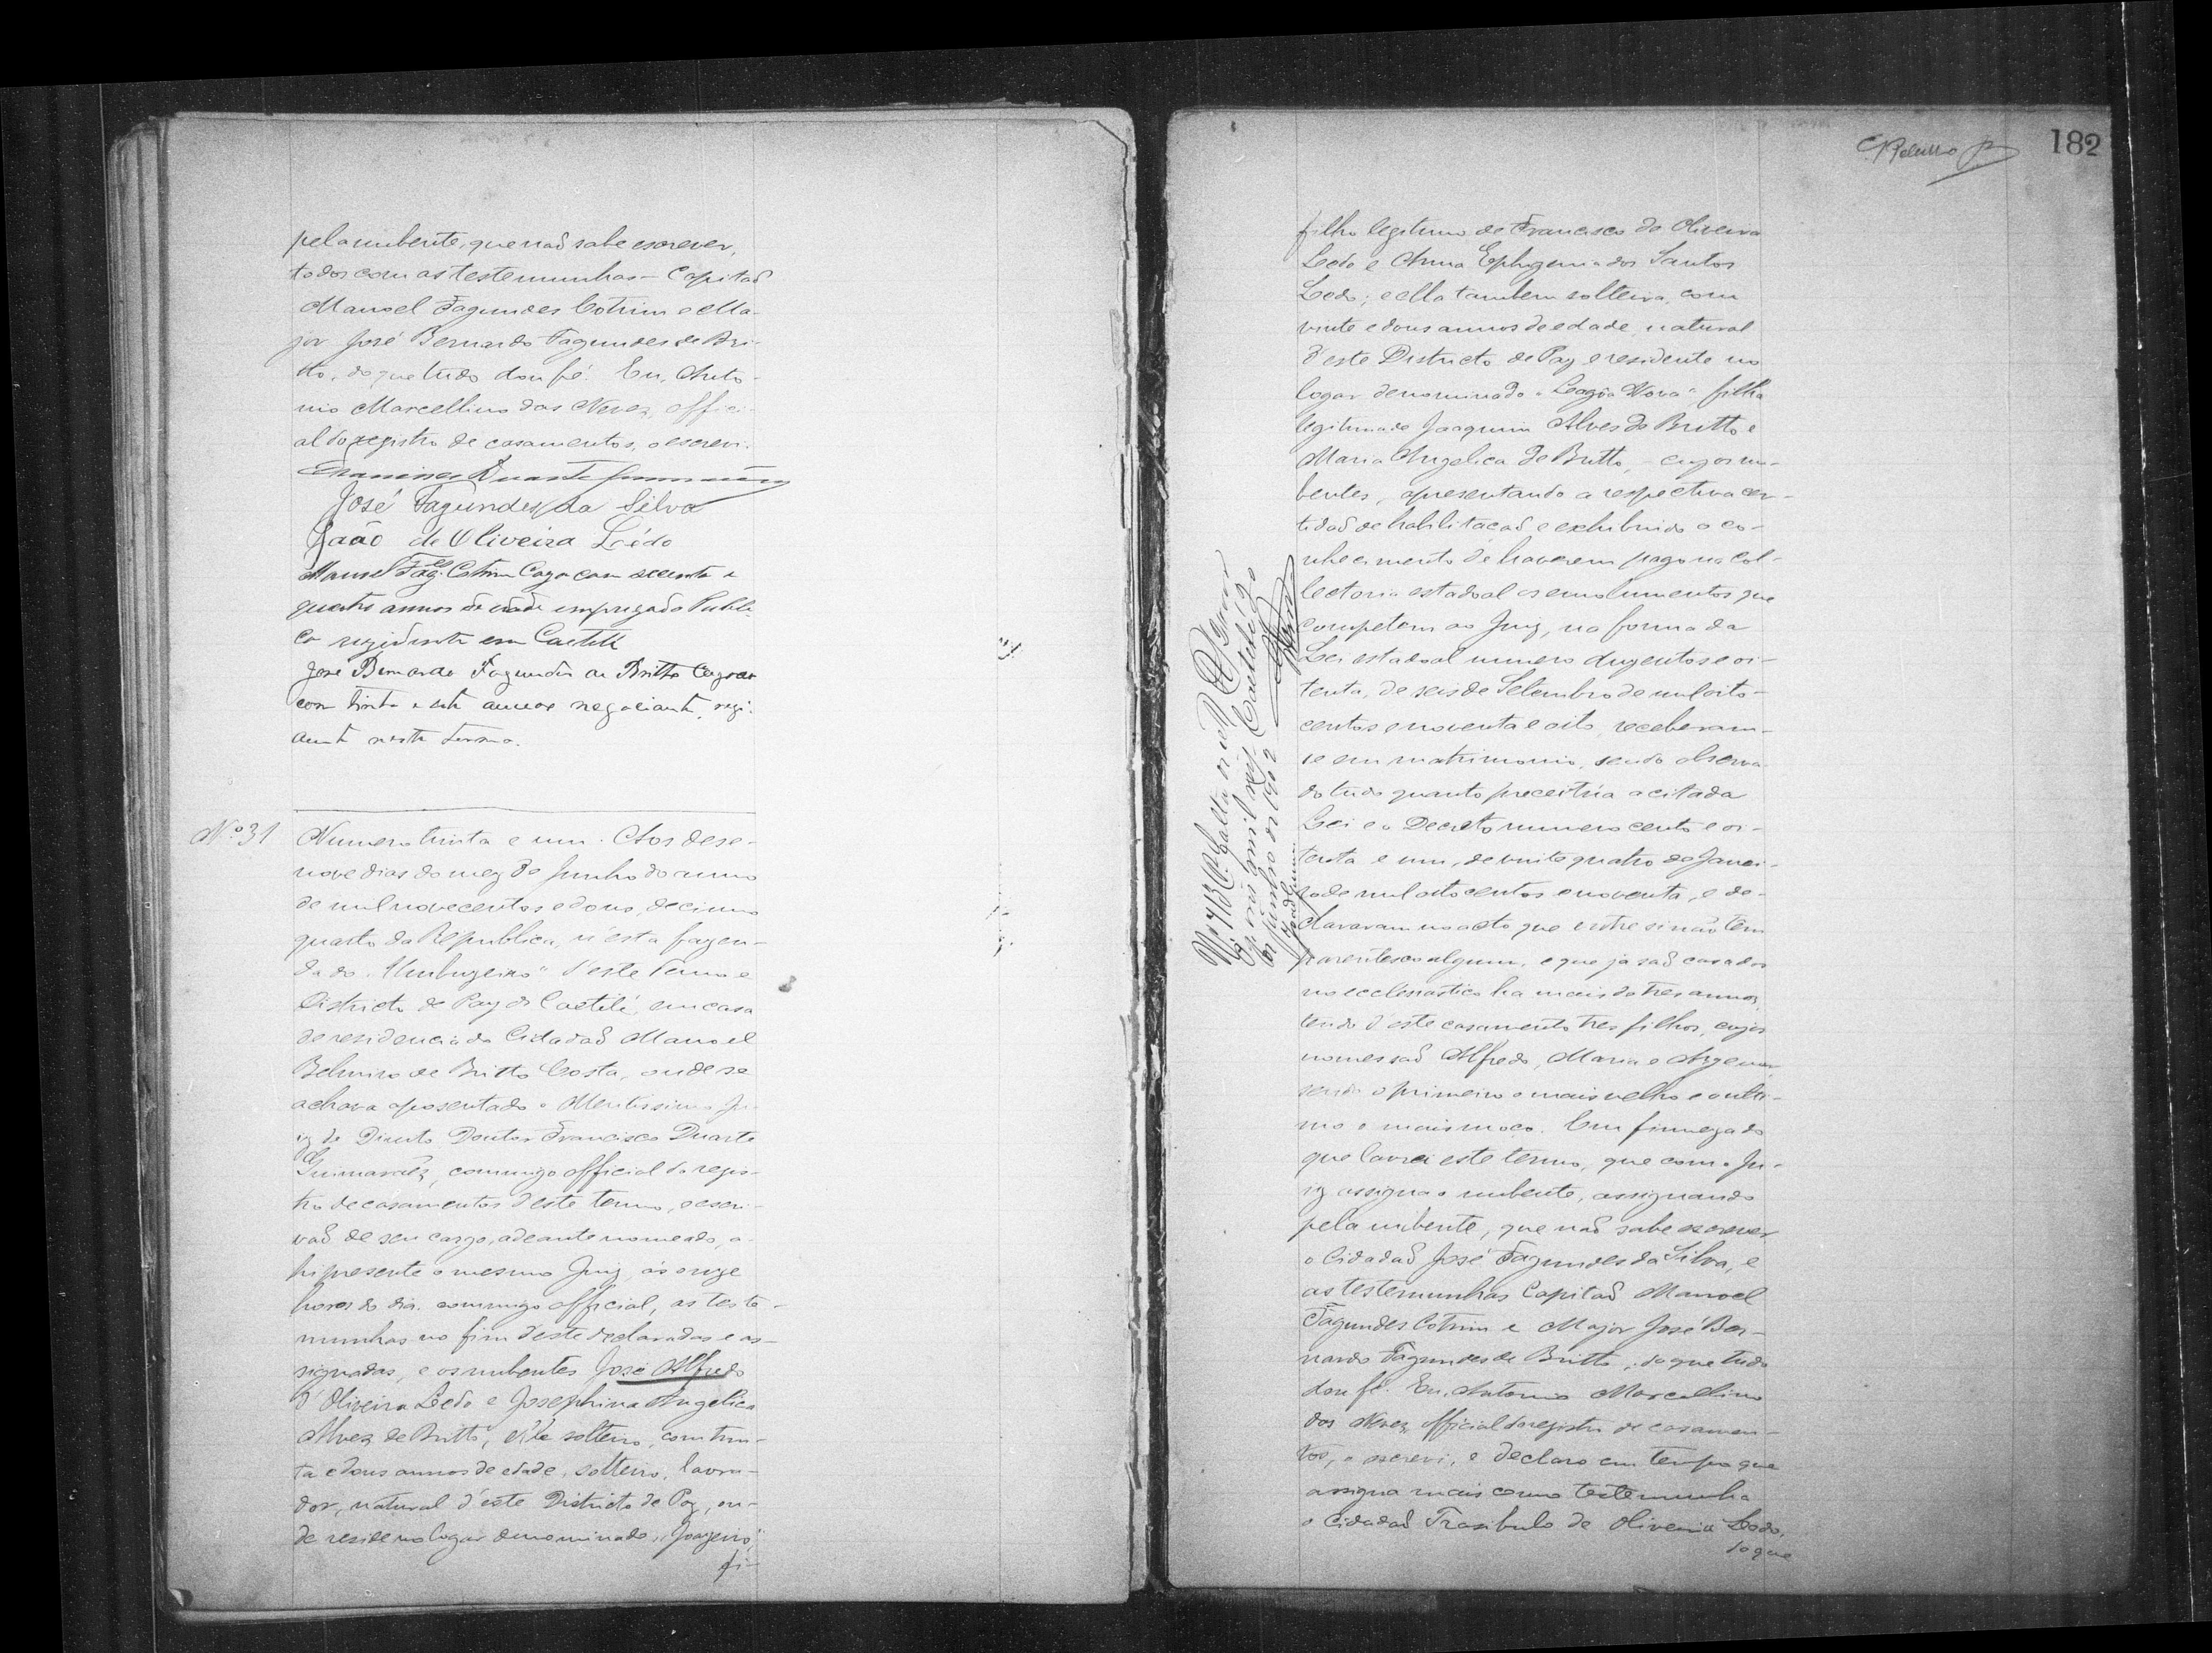 pela nubente, que naõ sabe escrever,
todos com as testemunhas - Capitaõ
Manoel Fagundes Cotrim e Ma-
jor José Bernardo Fagundes de Bri-
tto, do que tudo dou fé. Eu, Anto-
nio Marcellino das Neves, offici-
al do registro de casamentos, o escrevi.
Francisco Duarte Guimarães
José Fagundes da Silva
João de Oliveira Lédo
Manoel Fag.es Cotrim Cazo com secenta e
quatro annos de idade empregado Publi-
co rezidente em Caetité
José Bernardo Fagundes de Britto Cazado
com trinta e sete annos negociante, rezi-
dente neste termo.
Nº 31
Numero trinta e um. Aos dese-
nove dias do mez de Junho do anno
de mil novecentos e dous, decimo
quarto da Republica, n'esta fazen-
da do "Umbuzeiro" d'este Termo e
Districto de Paz de Caetité, em casa
de residencia do Cidadaõ Manoel
Belmiro de Britto Costa, onde se
achava aposentado o Meritissimo Ju-
iz de Direito Doutor Francisco Duarte
Guimarães, commigo official do regis-
tro de casamentos d'este termo, e escri-
vaõ de seu cargo, adeante nomeado, a-
hi presente o mesmo Juiz, ás onze
horas do dia, commigo official, as teste-
munhas no fim d'este declaradas e as-
signadas, e os nubentes José Alfredo
d'Oliveira Ledo e Josephina Angelica
Alves de Britto, elle solteiro, com trin-
ta e dous annos de edade, solteiro, lavra-
dor, natural d'este Districto de Paz, on-
de reside no logar denominado "Joazeiro,"
fi-
182
filho legitimo de Francisco de Oliveira
Ledo e Anna Ephigenia dos Santos
Ledo; e ella tambem solteira, com
vinte e dous annos de edade, natural
d'este Districto de Paz e residente no
logar denominado "Lagôa Nova" filha
legitima de Joaquim Alves de Britto e
Maria Angelica de Britto, - cujos nu-
bentes, apresentando a respectiva cer-
tidaõ de habilitacaõ e exhibindo o co-
nhecimento de haverem pago na Col-
lectoria estadoal os emolumentos que
competem ao Juiz, na forma da
Lei estadoal numero duzentos e oi-
tenta, de seis de Setembro de mil oito-
centos e noventa e oito, receberam-
se em matrimonio, sendo observa-
do tudo quanto preceitúa a citada
Lei e o Decreto numero cento e oi-
tenta e um, de vinte quatro de Janei-
ro de mil oitocentos e noventa, e de-
clararam no acto que entre si não tem
parentesco algum, e que já saõ casados
no ecclesiastico ha mais de tres annos,
tendo d'este casamento tres filhos, cujos
nomes saõ Alfredo, Maria e Argemor,
sendo o primeiro o mais velho e o ulti-
mo o mais moço. Em firmeza do
que lavrei este termo, que com o Ju-
iz assigna o nubente, assignando
pela nubente, que naõ sabe escrever
o Cidadaõ José Fagundes da Silva, e
as testemunhas Capitaõ Manoel
Fagundes Cotrim e Major José Ber-
nardo Fagundes de Britto, do que tudo
dou fé. Eu, Antonio Marcellino
das Neves, official do registro de casamen-
tos, o escrevi, e declaro em tempo que
assigna mais como testemunha
o Cidadaõ Trasibulo de Oliveira Ledo,
do que